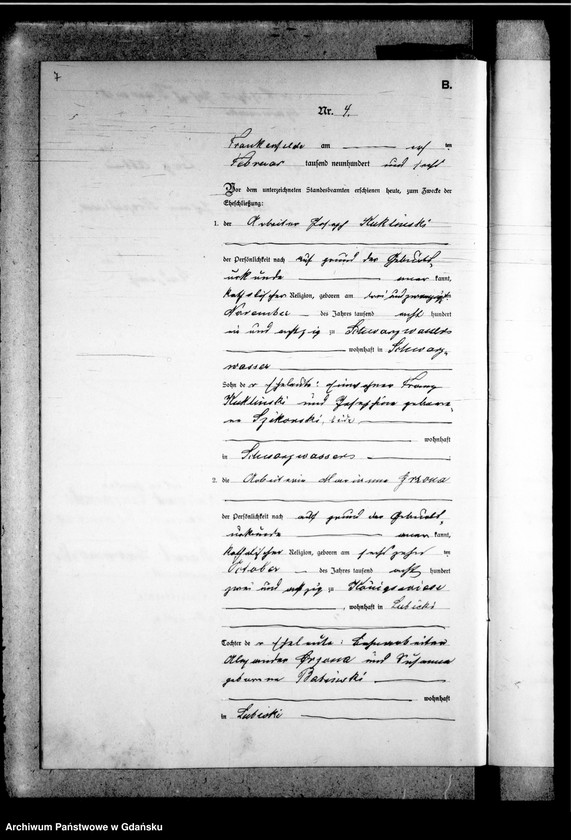 7
B.
Nr. 4.
Frankenfelde am ten
Februar tausend neunhundert und sechs
Vor dem unterzeichneten Standesbeamten erschienen heute, zum Zwecke der
Eheschließung:
1. der Arbeiter Joseph Kuklinski
der Persönlichkeit nach auf grund der Geburts-
urkunde aner kannt,
katholischer Religion, geboren am drei und zwanzigsten
November des Jahres tausend acht hundert
und achtzig zu Schwarzwasser
wohnhaft in Schwarz-
wasser
Sohn der Eheleute: Einwohner Franz
Kuklinski und Josephine gebore-
ne Sikorski, beide
wohnhaft
in Schwarzwasser
2. die Arbeiterin Marianna Grzona
der Persönlichkeit nach auf grund der Geburts-
urkunde aner kannt,
katholischer Religion, geboren am sechszehn ten
October des Jahres tausend acht hundert
zwei und achtzig zu Königswiese
, wohnhaft in Lubicki
Tochter der Eheleute:
Alexander Grzona und Susanna
geborene
wohnhaft
in Lubicki
Archiwum Państwowe w Gdańsku